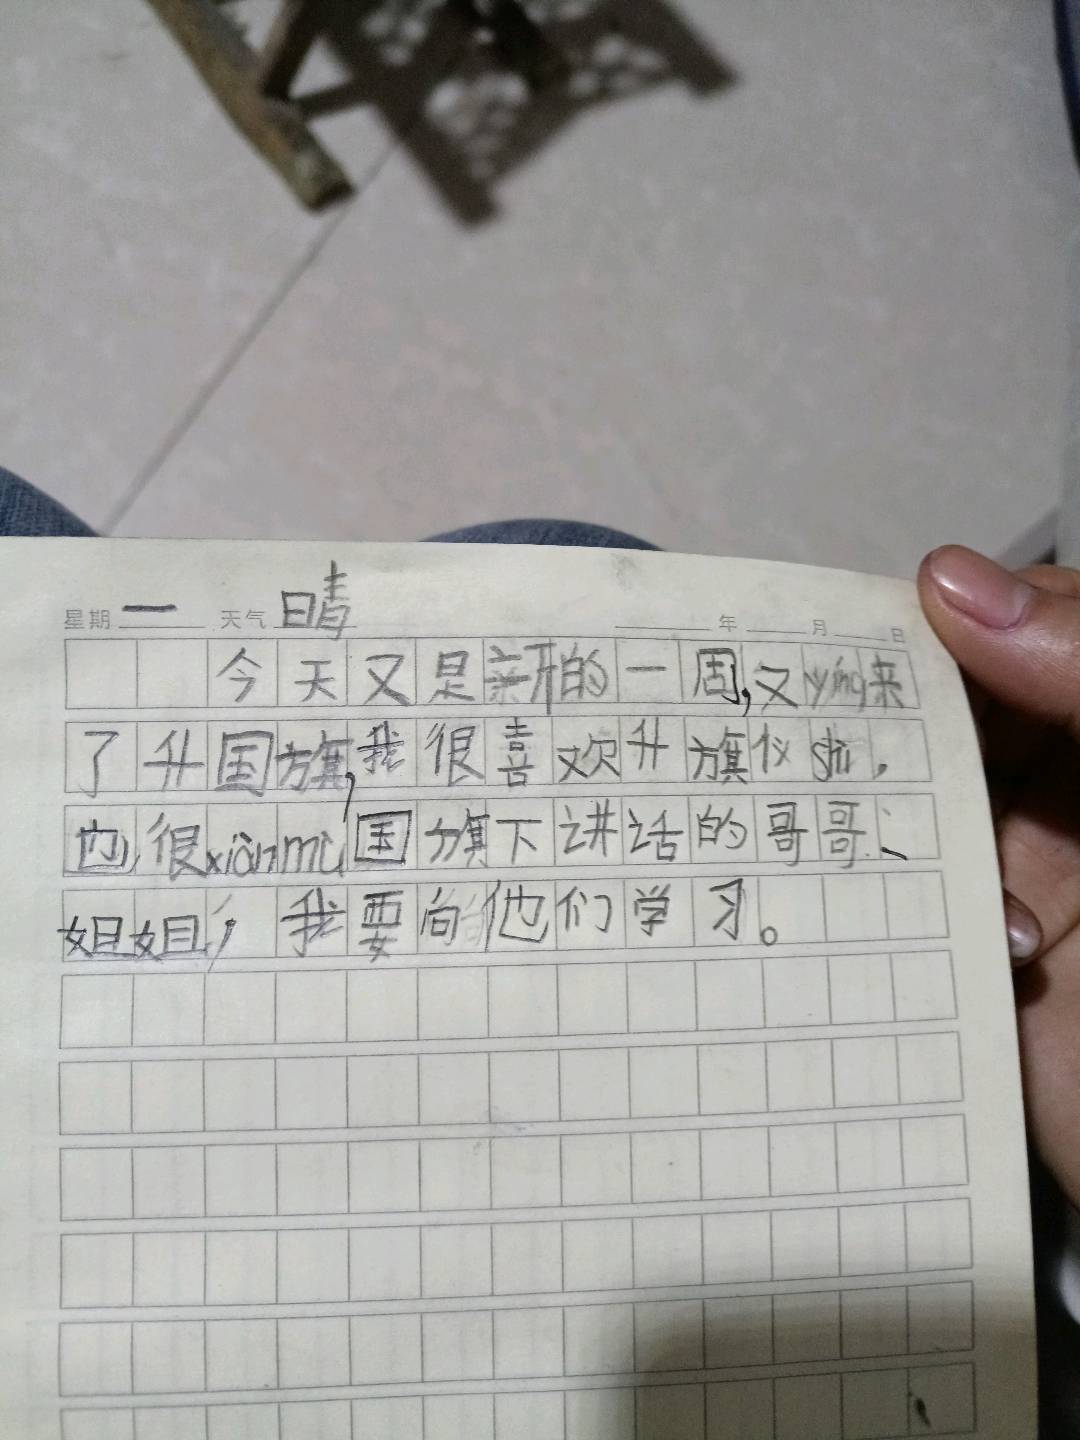 星期 一 天气 晴 年 月 日
今天又是新的一周,又yíng来
了升国旗,我很喜欢升旗仪shì,
也很xiànmù国旗下讲话的哥哥、
姐姐,我要向他们学习。